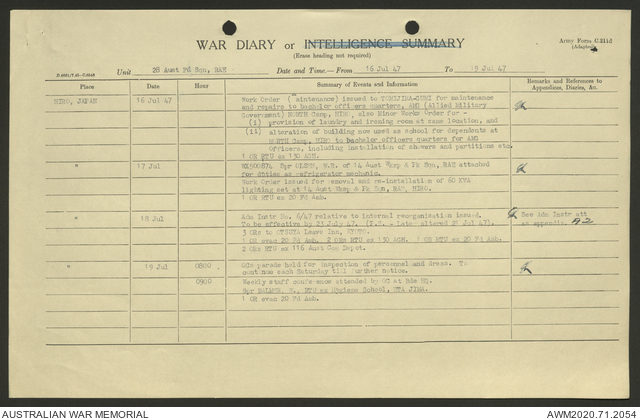 WAR DIARY or INTELLIGENCE SUMMARY
(Erase heading not required)
Army Form C.2118
(Adapted)
Unit 28 Aust Fd Sqn, RAE Date and Time.—From 16 Jul 47 To 19 Jul 47
Place Date Hour Summary of Events and Information Remarks and References to Appendices, Diaries, &c.
HIRO, JAPAN 16 Jul 47 Work Order (Maintenance) issued to for maintenance
and repairs to bachelor officers quarters, AMG (Allied Military
Government) NORTH Camp, HIRO, also Minor Works Order for -
(i) provision of laundry and ironing room at same location, and
(ii) alteration of building now used as school for dependents at
NORTH Camp, HIRO to bachelor officers quarters for AMG
Officers, including installation of showers and partitions etc.
1 OR RTU ex 130 AGH.
" 17 Jul Spr W.R. of 14 Aust Wksp & Pk Sqn, RAE attached
for duties as refrigerator mechanic.
Work Order issued for removal and re-installation of 60 KVA
lighting set at 14 Aust Wksp & Pk Sqn, RAE, HIRO.
1 OR RTU ex 20 Fd Amb.
" 18 Jul Adm Instr No. 6/47 relative to internal reorganisation issued. See Adm Instr att
To be effective by 23 July 47. later altered Jul 47). as appendix A2
3 ORs to OTSUYA Leave Inn, KYOTO.
1 OR evac 20 Fd Amb. 2 ORs RTU ex 130 AGH. 1 OR RTU ex 20 Fd Amb.
2 ORs RTU ex 116 Aust Depot.
" 19 Jul 0800 OCs parade held for inspection of personnel and dress. To
continue each Saturday till further notice.
0900 Weekly staff conference attended by OC at Bde HQ.
Spr RTU ex Hygiene School, ETA JIMA.
1 OR evac 20 Fd Amb.
AUSTRALIAN WAR MEMORIAL
AWM2020.71.2054